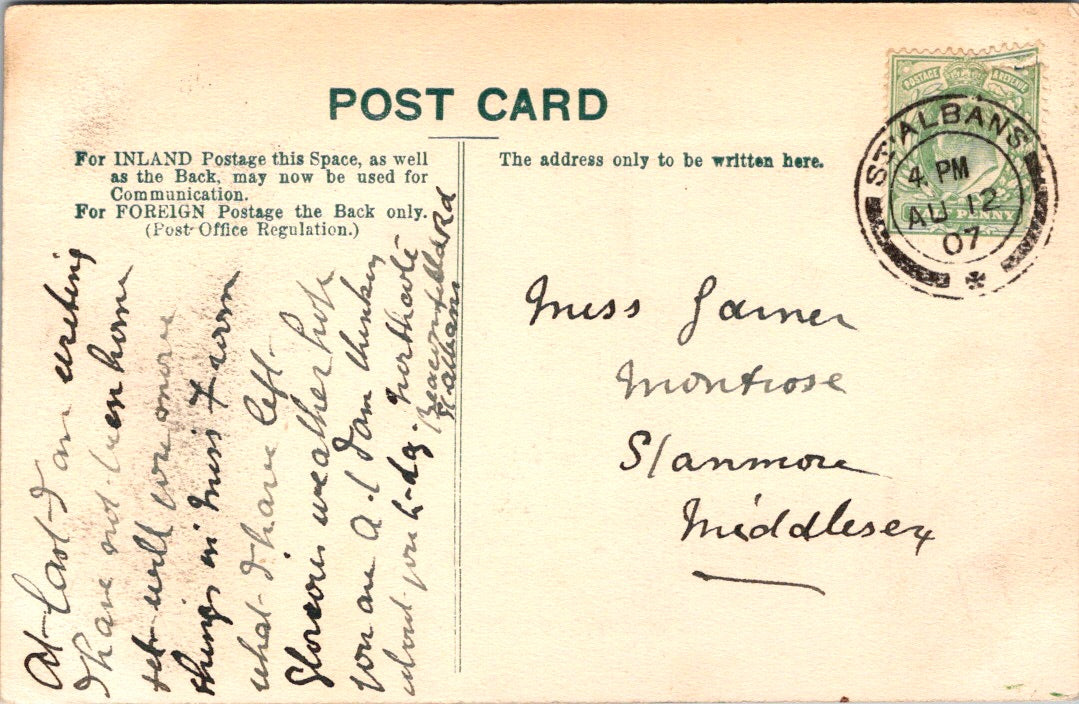 POST CARD
For INLAND Postage this Space, as well
as the Back, may now be used for
Communication.
For FOREIGN Postage the Back only.
(Post Office Regulation.)
The address only to be written here.
POSTAGE & REVENUE
PENNY
ST ALBANS
4. PM
AU 12
07
Miss Garner
Montrose
Stanmore
Middlesex
At last I am writing
I have not been home
yet will you
things in Miss
what I have left.
Glorious weather hope
you are A.1 I am thinking
about you to-day. Northcote
Beaconsfield Rd
St Albans